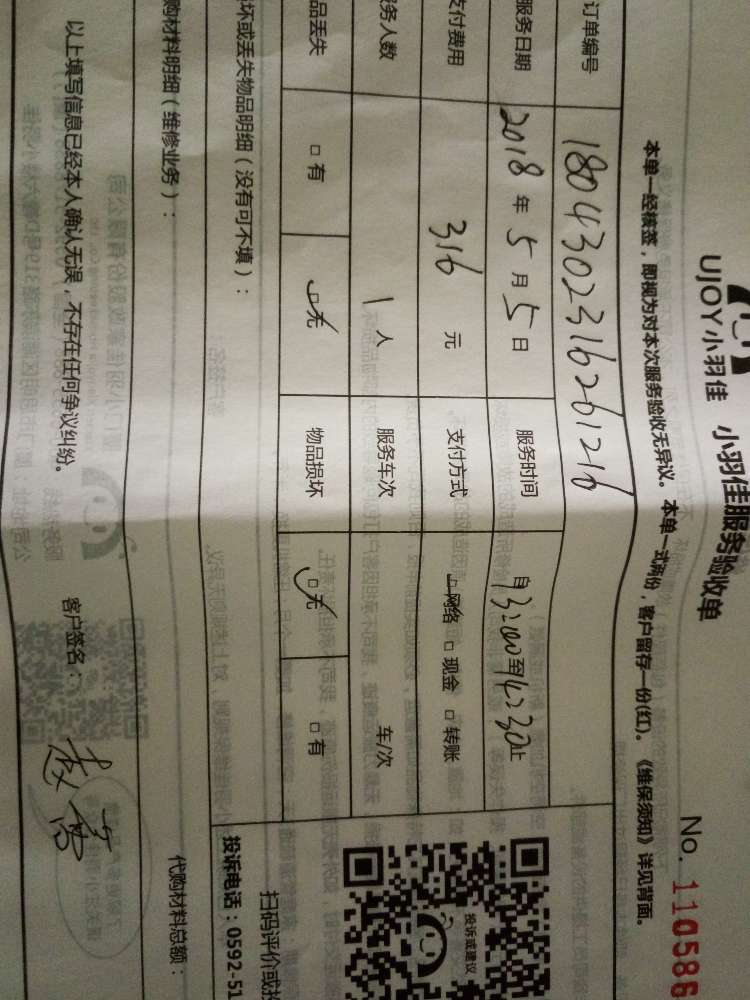 UJOY小羽佳 小羽佳服务验收单 No. 110586
本单一经核签，即视为对本次服务验收无异议。本单一式两份，客户留存一份(红)。《维保须知》详见背面。
订单编号 180430231626 1216
服务日期 2018年5月5日 服务时间 自13:00至14:30止
支付费用 316元 支付方式 网络 □现金 □转账
服务人数 1人 服务车次 车/次
品丢失 □有 □无 物品损坏 □无 □有
坏或丢失物品明细（没有可不填）：
购材料明细（维修业务）： 代购材料总额：
以上填写信息已经本人确认无误，不存在任何争议纠纷。 客户签名：
投诉或建议
扫码评价或投
投诉电话：0592-51